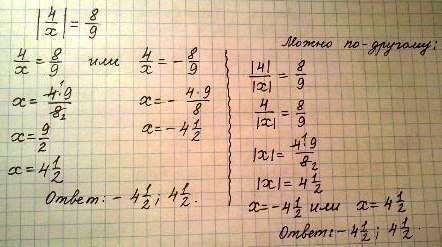 |4/x| = 8/9
4/x = 8/9 или 4/x = -8/9
x = 4·9/8 x = - 4·9/8
x = 9/2 x = -4 1/2
x = 4 1/2
Ответ: - 4 1/2; 4 1/2.
Можно по-другому:
|4|/|x| = 8/9
4/|x| = 8/9
|x| = 4·9/8
|x| = 4 1/2
x = -4 1/2 или x = 4 1/2
Ответ: -4 1/2; 4 1/2.